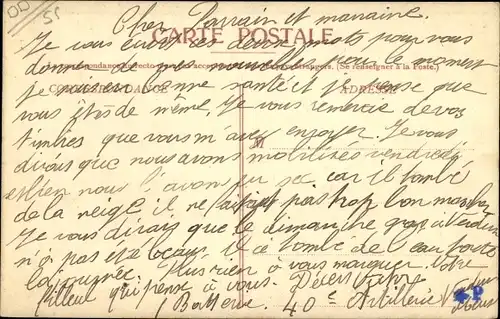 Cher Parrain et marraine.
CARTE POSTALE
Je vous écrit ces deux mots pour vous
donner de mes nouvelles pour le moment
(Se renseigner à la Poste.)
je suis en bonne santé et je pense que
CORRESPONDANCE ADRESSE
vous êtes de même. Je vous remercie de vos
timbres que vous m'avez envoyer. Je vous
M
dirais que nous avons mobilisés vendredi
et bien nous l'avons eu sec car il tombé
de la neige il ne faisait pas trop bon marcher
Je vous dirais que le dimanche gras à Verdun
n'a pas été beau. Il a tombé de l'eau toute
la journée. Plus rien à vous marquer. Votre
filleul qui pense à vous.
Batterie 40e Artillerie